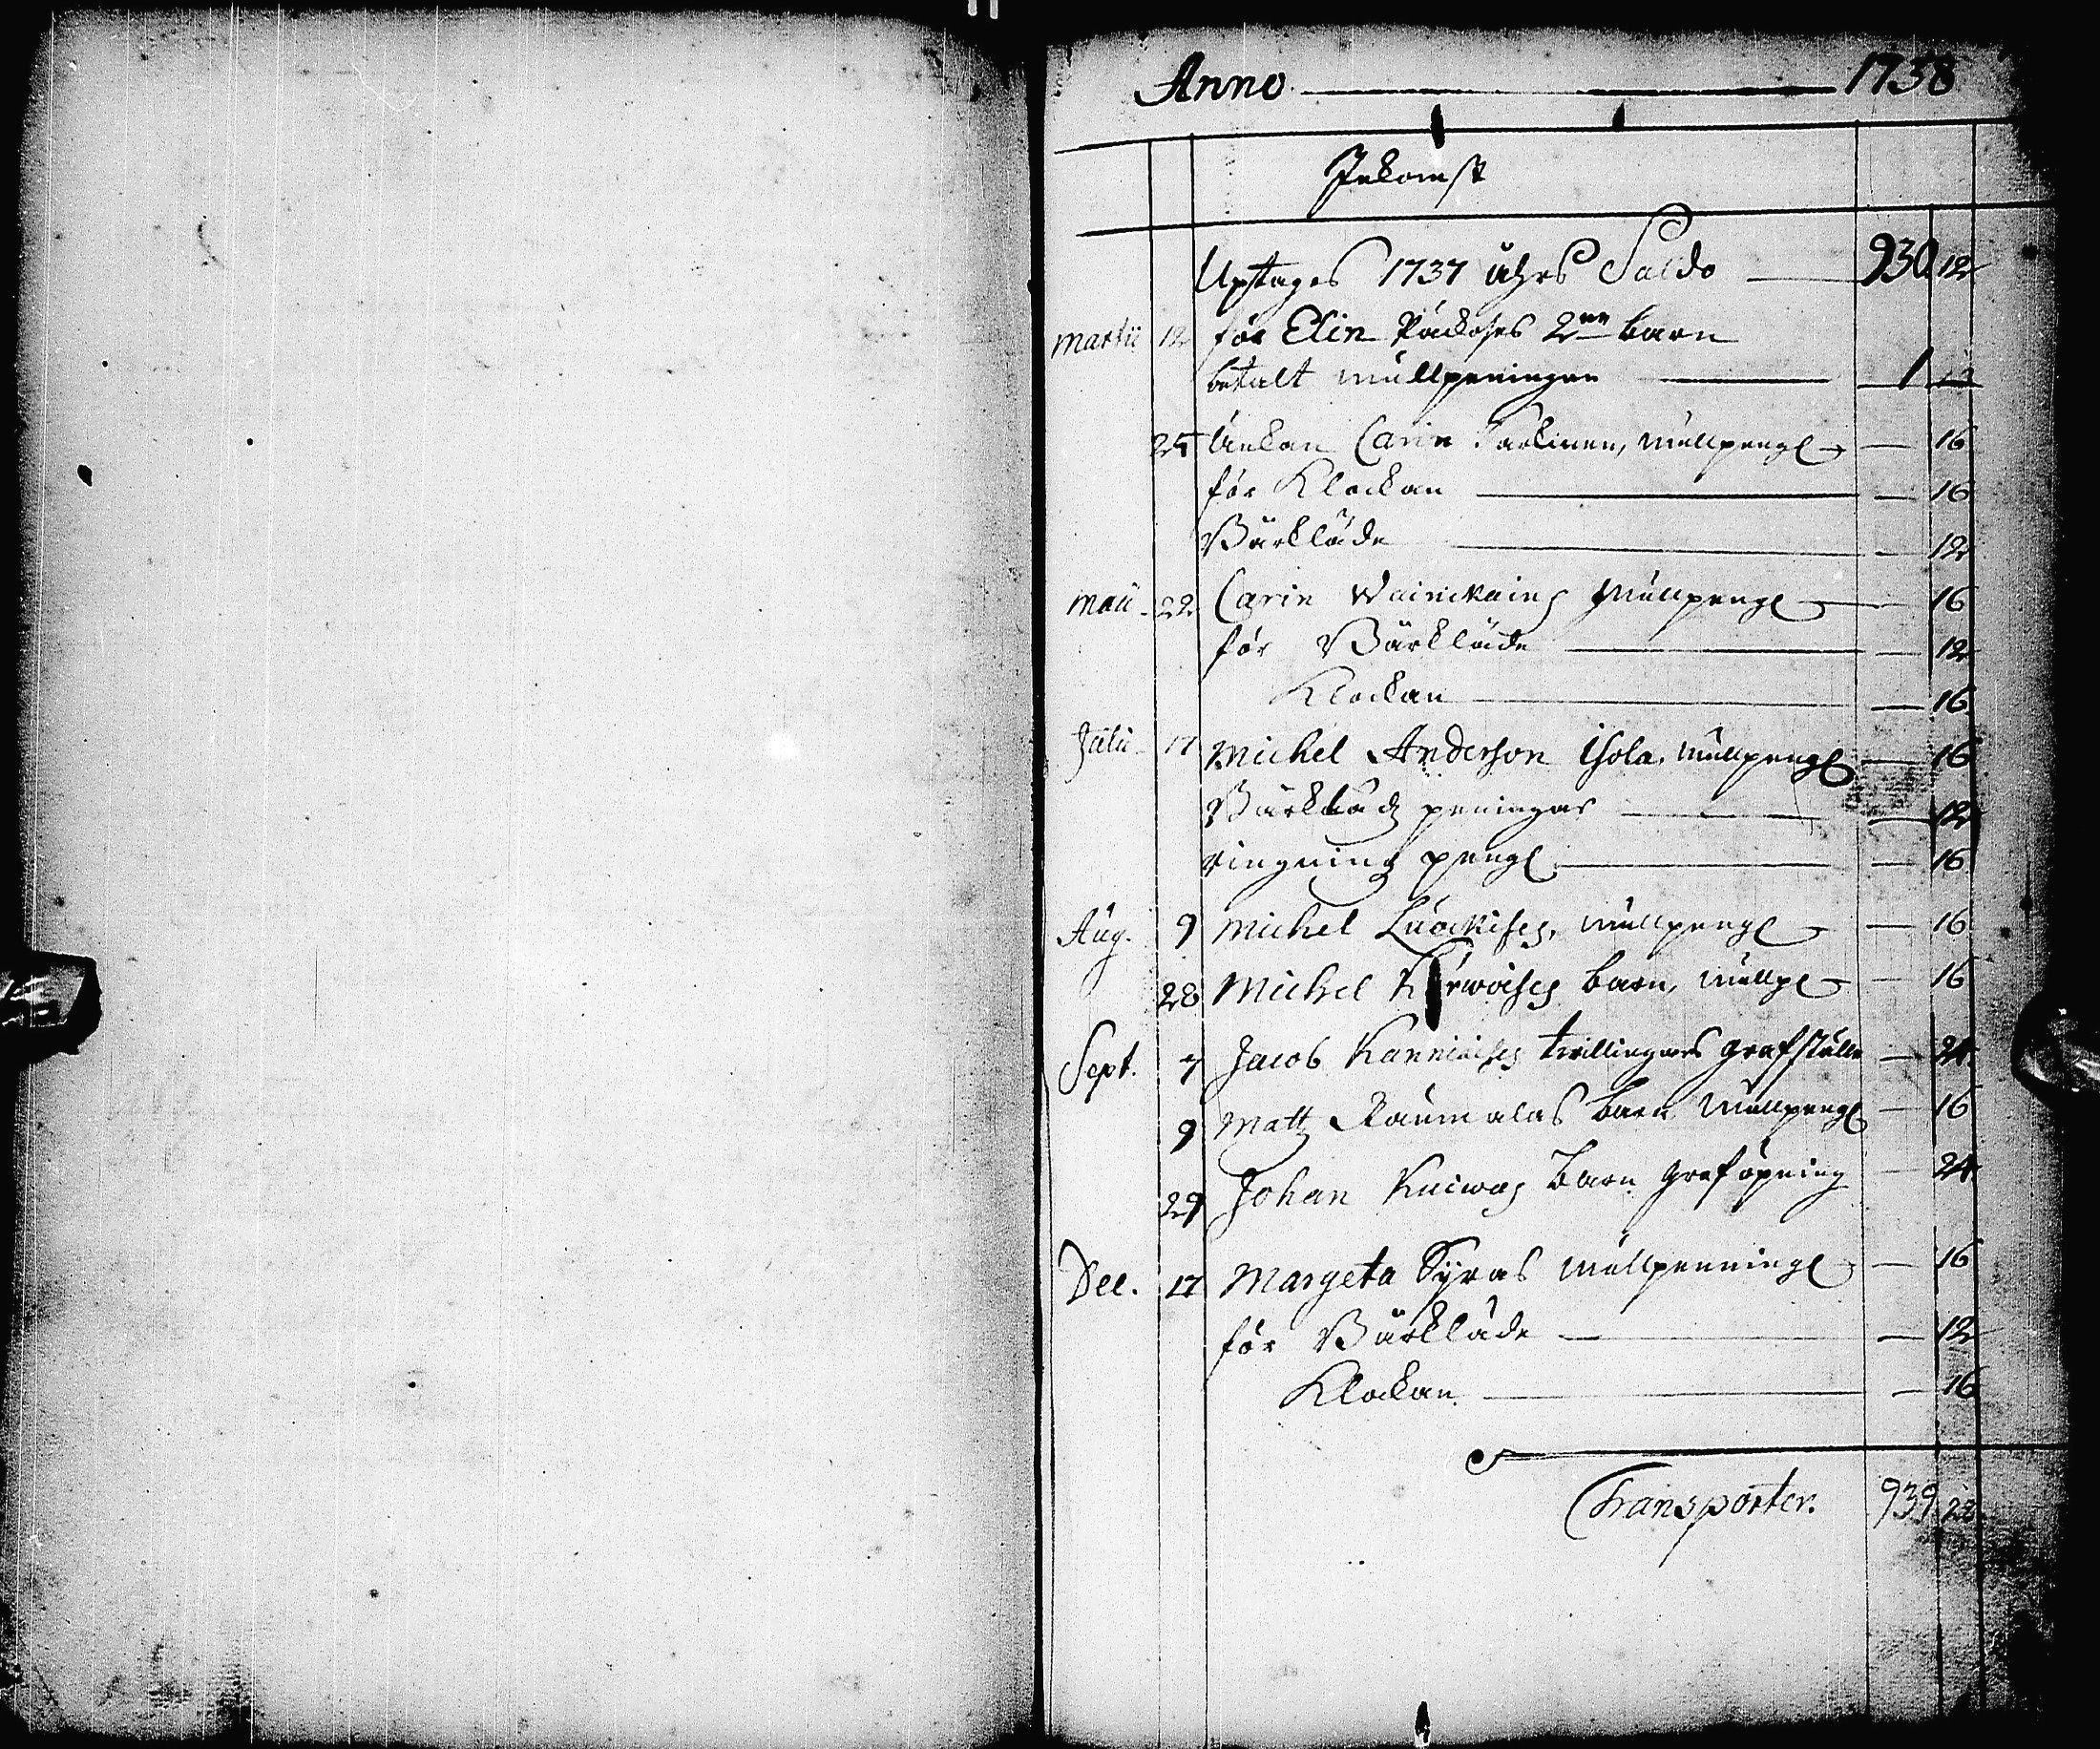 Anno 1738
Inkomst
Upptages 1737 åhrs Saldo 930 12
Martii 12 för Elin 2ne barn
betalt mullpeningen 1
25 Änkan Carin mullpeng 16
för Klockan 16
Bårkläde 12
Maii 22 Carin mullpeng 16
för Bårkläde 12
Klockan 16
Julii 17 Michel Anderson Isola, mullpeng 16
Bårklädz peningar 12
ringningz peng 16
Aug. 9 Michel mullpeng 16
28 Michel barn, mullp 16
Sept. 7 Jacob twillingars grafställe 24
9 Matz Raumalas barn mullpeng 16
29 Johan barn graföpning 24
Dec. 17 Margeta Syras mullpenning 16
för Bårkläde 12
Klockan 16
Transporter. 939 28